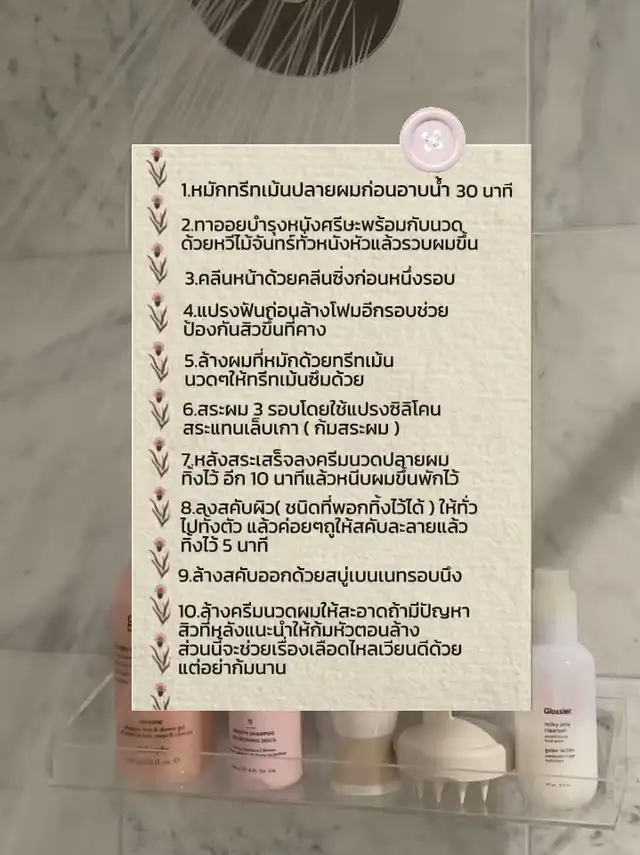 1.หมักทรีทเม้นปลายผมก่อนอาบน้ำ 30 นาที
2.ทาออยบำรุงหนังศรีษะพร้อมกับนวด
ด้วยหวีไม้จันทร์ทั่วหนังหัวแล้วรวบผมขึ้น
3.คลีนหน้าด้วยคลีนซิ่งก่อนหนึ่งรอบ
4.แปรงฟันก่อนล้างโฟมอีกรอบช่วย
ป้องกันสิวขึ้นที่คาง
5.ล้างผมที่หมักด้วยทรีทเม้น
นวดๆให้ทรีทเม้นซึมด้วย
6.สระผม 3 รอบโดยใช้แปรงซิลิโคน
สระแทนเล็บเกา ( ก้มสระผม )
7.หลังสระเสร็จลงครีมนวดปลายผม
ทิ้งไว้ อีก 10 นาทีแล้วหนีบผมขึ้นพักไว้
8.ลงสคับผิว( ชนิดที่พอกทิ้งไว้ได้ ) ให้ทั่ว
ไปทั้งตัว แล้วค่อยๆถูให้สคับละลายแล้ว
ทิ้งไว้ 5 นาที
9.ล้างสคับออกด้วยสบู่เบนเนทรอบนึง
10.ล้างครีมนวดผมให้สะอาดถ้ามีปัญหา
สิวที่หลังแนะนำให้ก้มหัวตอนล้าง
ส่วนนี้จะช่วยเรื่องเลือดไหลเวียนดีด้วย
แต่อย่าก้มนาน
Glossier.
milky jelly
cleanser